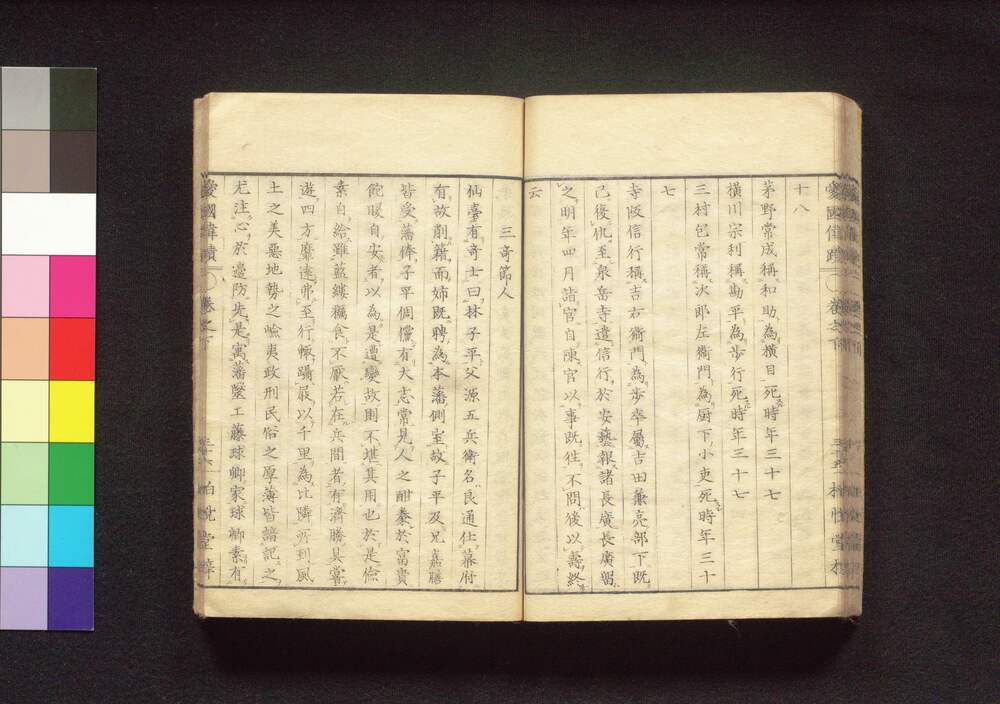 十八
茅野常成稱和助為橫目死時年三十七
橫川宗利稱勘平為步行死時年三十七
三村包常稱次郎左衛門為厨下小吏死時年三十
七
寺阪信行稱吉右衛門為步卒屬吉田兼亮部下既
已復仇至泉岳寺遣信行於安藝報諸長廣長廣留
之明年四月詣官自陳官以事既往不問後以壽終
云
三奇節人
仙臺有奇士曰林子平父源五兵衛名良通仕幕府
有故削籍而姉既聘為本藩側室故子平及兄嘉膳
皆受藩俸子平倜儻有大志常見人之酣豢於富貴
飽暖自安者以為是遭變故則不堪其用也於是儉
素自給雖藍縷糲食不厭若在兵間者有濟勝具嘗
遊四方靡遠弗至行縢躡屐以千里為比隣所到風
土之美惡地勢之險夷政刑民俗之厚薄皆諳記之
尤注心於邊防先是寓藩醫工藤球卿家球卿素有
愛國偉蹟 卷之下